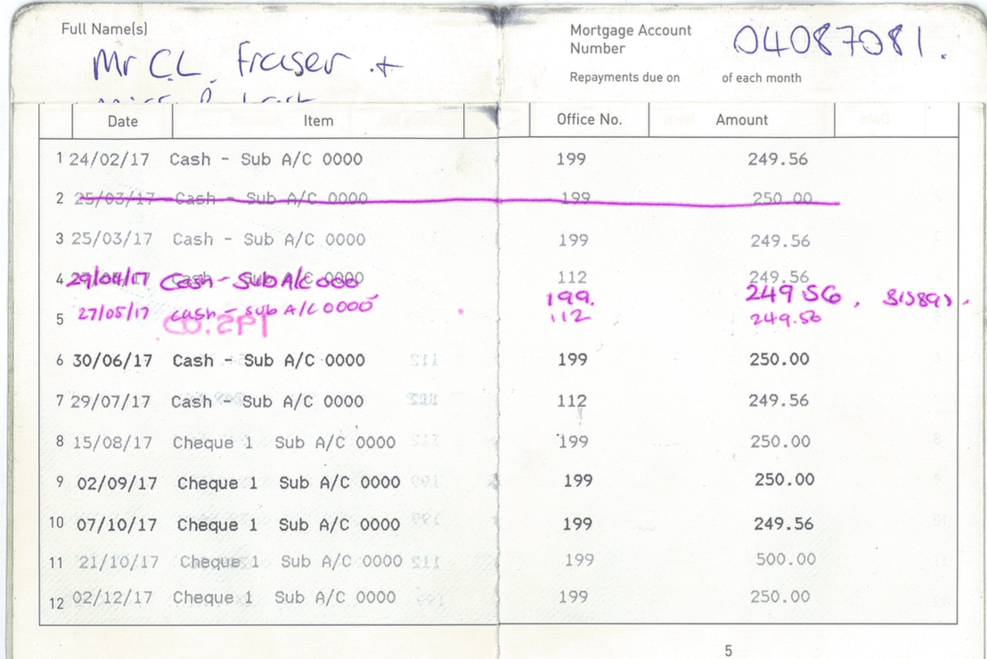 Full Name(s)
Mr C.L. Fraser +
Mortgage Account
Number
04087081.
Repayments due on of each month
Date Item Office No. Amount
1 24/02/17 Cash - Sub A/C 0000 199 249.56
2 25/03/17 Cash - Sub A/C 0000 199 250.00
3 25/03/17 Cash - Sub A/C 0000 199 249.56
4 29/04/17 Cash - Sub A/C 000 112 249.56
199. 249 56,
5 27/05/17 cash - sub A/C 0000 112 249.56
6 30/06/17 Cash - Sub A/C 0000 199 250.00
7 29/07/17 Cash - Sub A/C 0000 112 249.56
8 15/08/17 Cheque 1 Sub A/C 0000 199 250.00
9 02/09/17 Cheque 1 Sub A/C 0000 199 250.00
10 07/10/17 Cheque 1 Sub A/C 0000 199 249.56
11 21/10/17 Cheque 1 Sub A/C 0000 199 500.00
12 02/12/17 Cheque 1 Sub A/C 0000 199 250.00
5